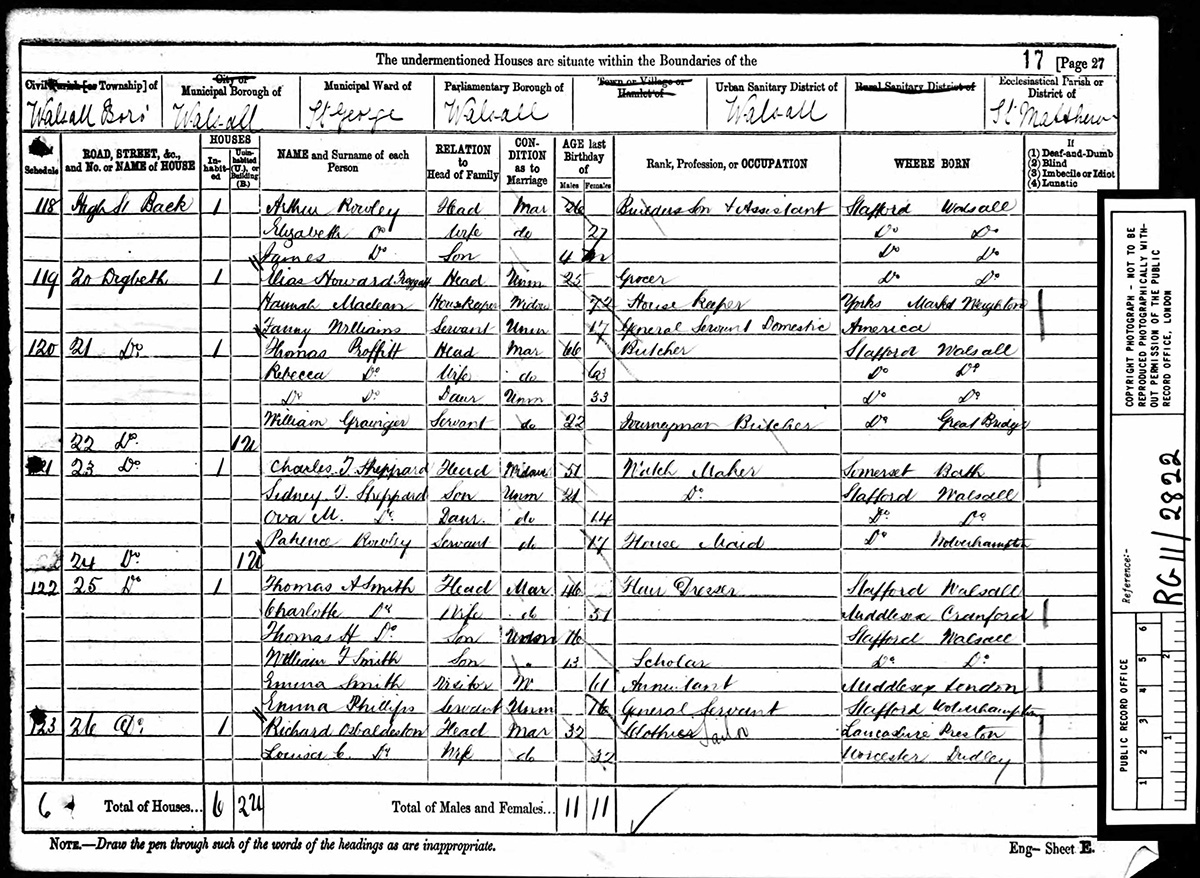 The undermentioned Houses are situate within the Boundaries of the 17 [Page 27
Civil Parish [or Township] of
City or Municipal Borough of
Municipal Ward of
Parliamentary Borough of
Town or Village or Hamlet of
Urban Sanitary District of
Rural Sanitary District of
Ecclesiastical Parish or District of
Walsall Boro' Walsall St George Walsall Walsall St Matthew
Schedule
ROAD, STREET, &c., and No. or NAME of HOUSE
HOUSES
Inhabited
Uninhabited (U.), or Building (B.)
NAME and Surname of each Person
RELATION to Head of Family
CONDITION as to Marriage
AGE last Birthday of
Males Females
Rank, Profession, or OCCUPATION
WHERE BORN
If
(1) Deaf-and-Dumb
(2) Blind
(3) Imbecile or Idiot
(4) Lunatic
118 High St Back 1 Arthur Rowley Head Mar 26 Builders Son & Assistant Stafford Walsall
Elizabeth Do Wife do 27 Do Do
James Do Son 4 m Do Do
119 20 Digbeth 1 Elias Howard Head Unm 25 Grocer Do Do
Hannah Maclean Housekeeper Widow 72 House Keeper Yorks Market Weighton
Fanny Williams Servant Unm 17 General Servant Domestic America
120 21 Do 1 Thomas Proffitt Head Mar 66 Butcher Stafford Walsall
Rebecca Do Wife do 63 Do Do
Do Do Daur Unm 33 Do Do
William Grainger Servant do 22 Journeyman Butcher Do Great Bridge
22 Do 1U
121 23 Do 1 Charles T Sheppard Head Widower 51 Watch Maker Somerset Bath
Sidney T Sheppard Son Unm 21 Do Stafford Walsall
Ova M. Do Daur. do 14 Do Do
Patience Rowley Servant do 17 House Maid Do Wolverhampton
24 Do 1U
122 25 Do 1 Thomas A Smith Head Mar 46 Hair Dresser Stafford Walsall
Charlotte Do Wife do 51 Middlesex Cranford
Thomas H Do Son Unm 16 Stafford Walsall
William F Smith Son " 13 Scholar Do Do
Emma Smith Visitor W 61 Annuitant Middlesex London
Emma Phillips Servant Unm 16 General Servant Stafford Wolverhampton
123 26 Do 1 Richard Osbaldeston Head Mar 32 Clothier Tailor Lancashire Preston
Louisa C. Do Wife do 32 Worcester Dudley
6 Total of Houses... 6 2U Total of Males and Females... 11 11
NOTE.—Draw the pen through such of the words of the headings as are inappropriate. Eng- Sheet E.
COPYRIGHT PHOTOGRAPH - NOT TO BE
REPRODUCED PHOTOGRAPHICALLY WITH-
OUT PERMISSION OF THE PUBLIC
RECORD OFFICE, LONDON
Reference:-
RG 11/2822
PUBLIC RECORD OFFICE
1 2 3 4 5 6
1 2